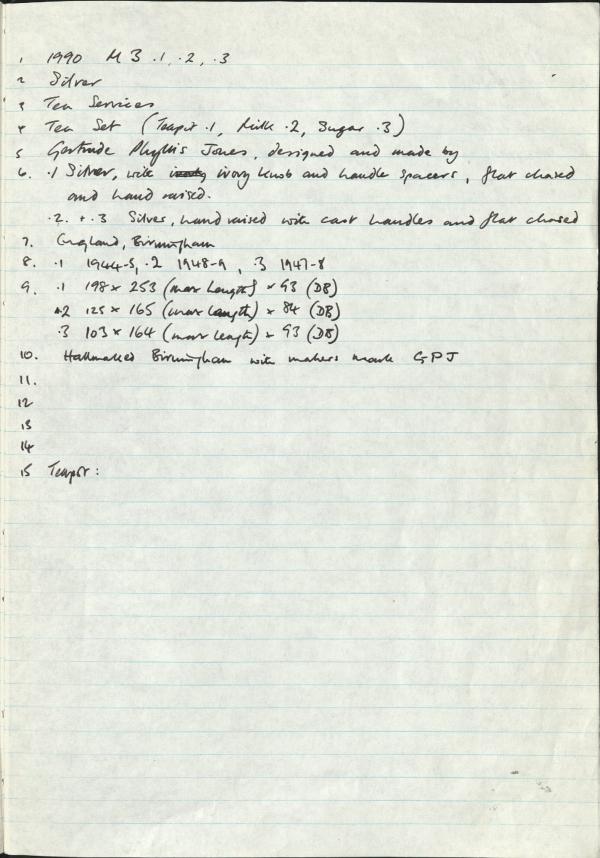 1 1990 M 3 .1, .2, .3
2 Silver
3 Tea Services
4 Tea Set (Teapot .1, Milk .2, Sugar .3)
5 Gertrude Phyllis Jones, designed and made by
6. .1 Silver, with ivory knob and handle spacers, flat chased
and hand raised.
.2. + .3 Silver, hand raised with cast handles and flat chased
7. England, Birmingham
8. .1 1944-5, .2 1948-9, .3 1947-8
9. .1 198 x 253 (max length) x 93 (DB)
.2 125 x 165 (max length) x 84 (DB)
.3 103 x 164 (max length) x 93 (DB)
10. Hallmarked Birmingham with makers mark GPJ
11.
12
13
14
15 Teapot: